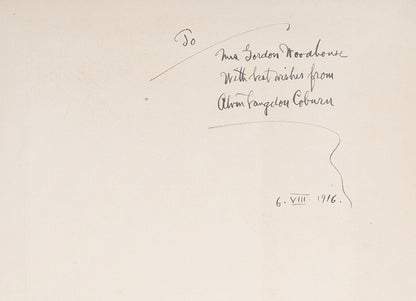 To
Mrs Gordon Woodhouse
With best wishes from
Alvin Langdon Coburn
6. VIII. 1916.